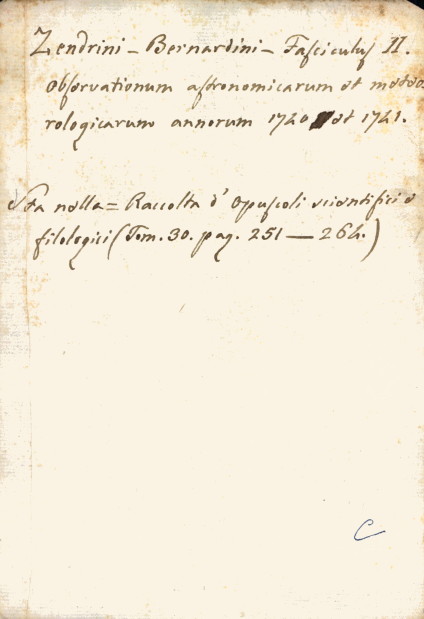 Zendrini - Bernardini - Fasciculus II.
Observationum astronomicarum et meteo
rologicarum annorum 1720 et 1721.
Sta nella = Raccolta d' opuscoli scientifici e
filologici (Tom. 30. pag. 251 — 264.)
C